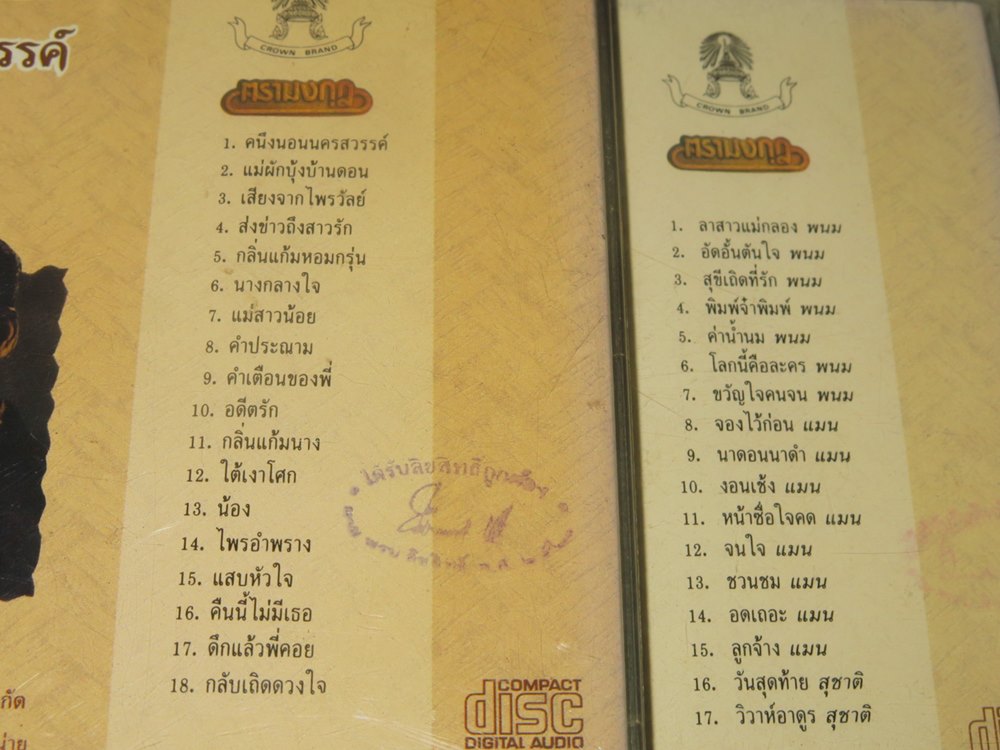 รรค์
CROWN BRAND
ตรามงกุฎ
1. คนึงนอนนครสวรรค์
2. แม่ผักบุ้งบ้านดอน
3. เสียงจากไพรวัลย์
4. ส่งข่าวถึงสาวรัก
5. กลิ่นแก้มหอมกรุ่น
6. นางกลางใจ
7. แม่สาวน้อย
8. คำประณาม
9. คำเตือนของพี่
10. อดีตรัก
11. กลิ่นแก้มนาง
12. ใต้เงาโศก
13. น้อง
14. ไพรอำพราง
15. แสบหัวใจ
16. คืนนี้ไม่มีเธอ
17. ดึกแล้วพี่คอย
18. กลับเถิดดวงใจ
ได้รับลิขสิทธิ์ถูกต้อง
COMPACT
disc
DIGITAL AUDIO
กัด
น่าย
CROWN BRAND
ตรามงกุฎ
1. ลาสาวแม่กลอง พนม
2. อัดอั้นตันใจ พนม
3. สุขีเถิดที่รัก พนม
4. พิมพ์จ๋าพิมพ์ พนม
5. ค่าน้ำนม พนม
6. โลกนี้คือละคร พนม
7. ขวัญใจคนจน พนม
8. จองไว้ก่อน แมน
9. นาดอนนาดำ แมน
10. งอนเช้ง แมน
11. หน้าซื่อใจคด แมน
12. จนใจ แมน
13. ชวนชม แมน
14. อดเถอะ แมน
15. ลูกจ้าง แมน
16. วันสุดท้าย สุชาติ
17. วิวาห์อาดูร สุชาติ